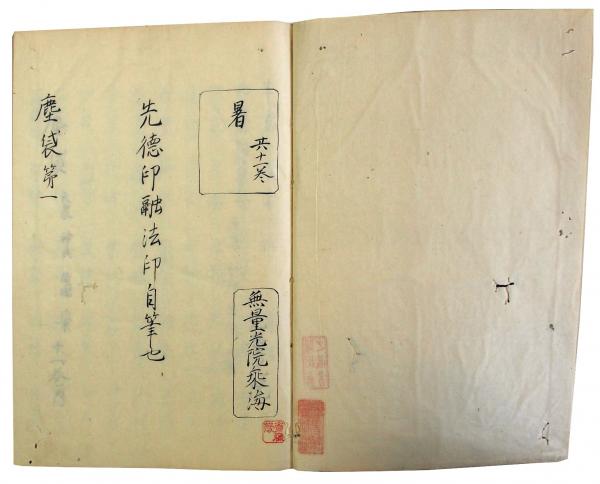 暑
共十一巻
無量光院乗海
先徳印融法印自筆也
塵袋第一